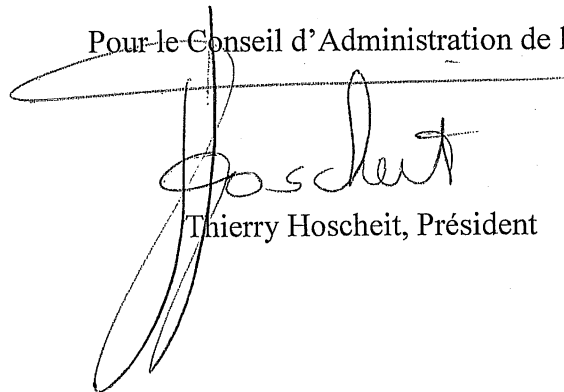 Pour le Conseil d'Administration de l
Hoscheit
Thierry Hoscheit, Président